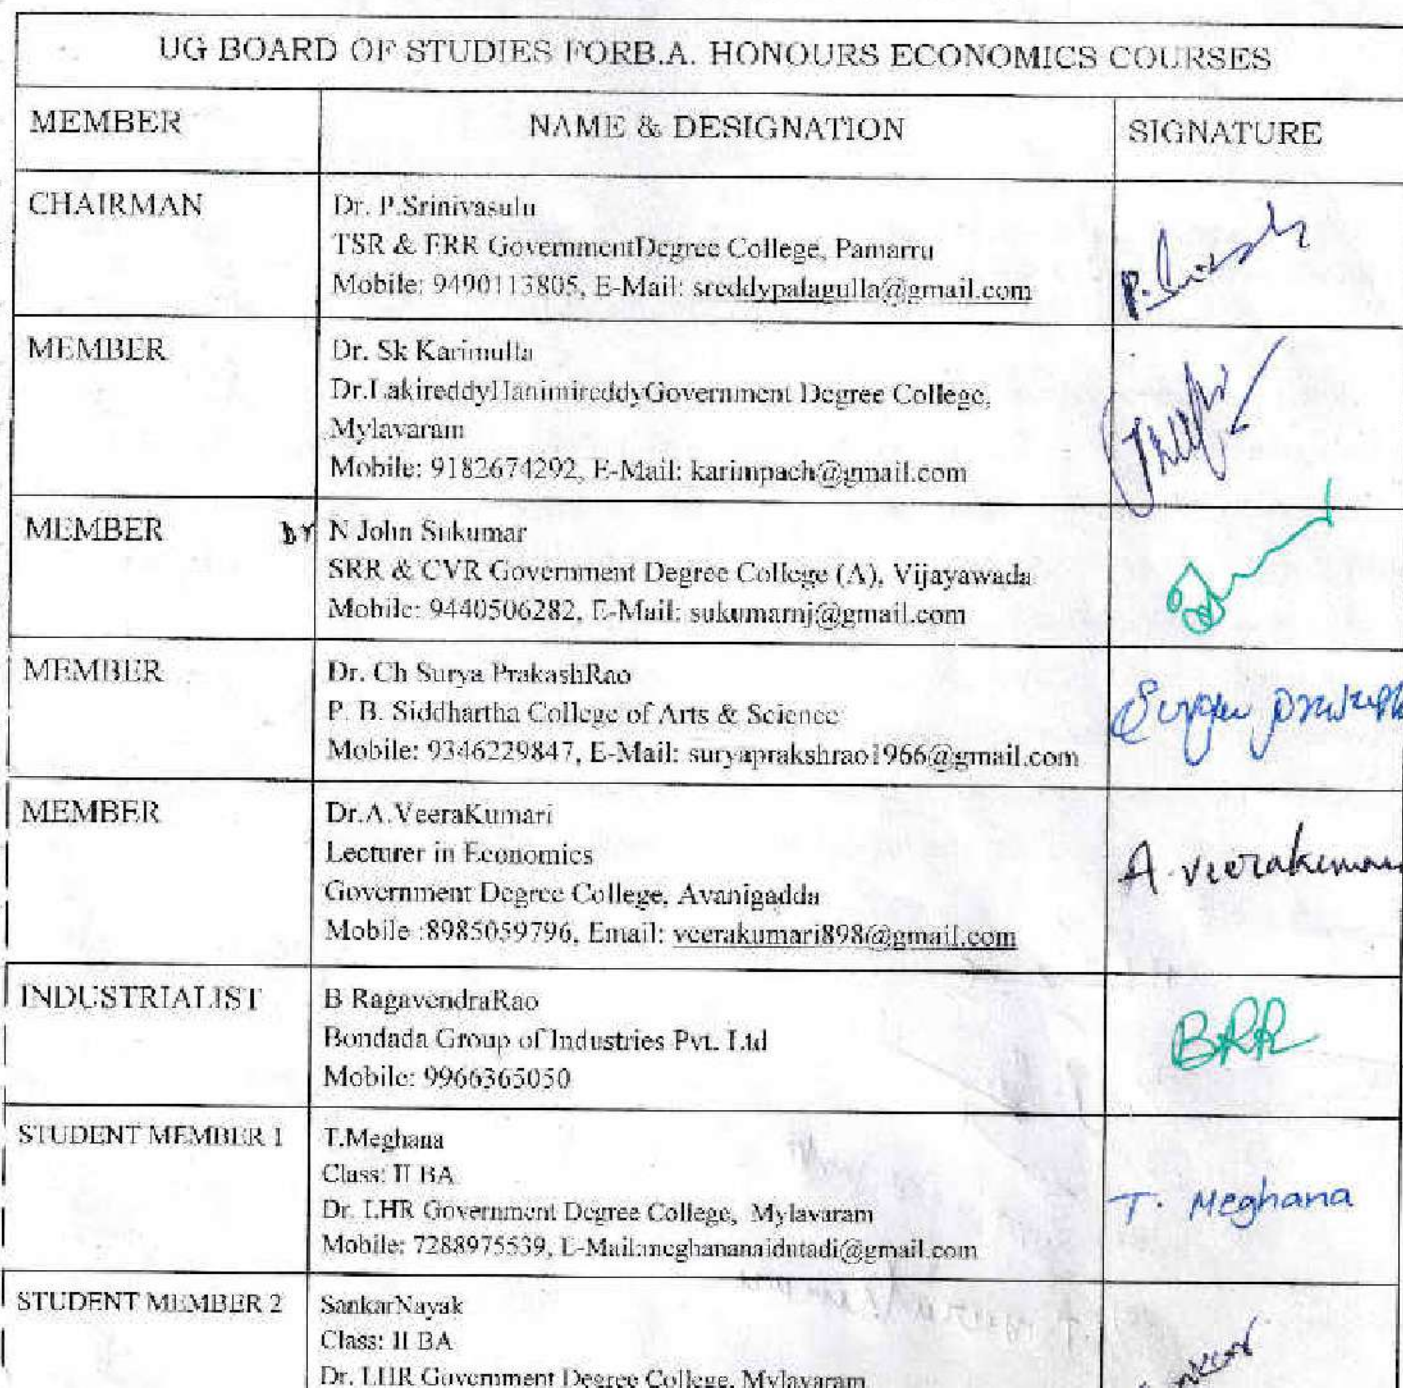 UG BOARD OF STUDIES FORB.A. HONOURS ECONOMICS COURSES
MEMBER NAME & DESIGNATION SIGNATURE
CHAIRMAN Dr. P.Srinivasulu
TSR & ERR GovernmentDegree College, Pamarru
Mobile: 9490113805, E-Mail: sreddypalagulla@gmail.com
MEMBER Dr. Sk Karimulla
Dr.LakireddyHanimireddyGovernment Degree College,
Mylavaram
Mobile: 9182674292, E-Mail: karimpach@gmail.com
MEMBER Dr N John Sukumar
SRR & CVR Government Degree College (A), Vijayawada
Mobile: 9440506282, E-Mail: sukumarnj@gmail.com
MEMBER Dr. Ch Surya PrakashRao
P. B. Siddhartha College of Arts & Science
Mobile: 9346229847, E-Mail: suryaprakshrao1966@gmail.com
MEMBER Dr.A.VeeraKumari
Lecturer in Economics
Government Degree College, Avanigadda
Mobile :8985059796, Email: veerakumari898@gmail.com
A. veerakumari
INDUSTRIALIST B RagavendraRao
Bondada Group of Industries Pvt. Ltd
Mobile: 9966365050
BRR
STUDENT MEMBER 1 T.Meghana
Class: II BA
Dr. LHR Government Degree College, Mylavaram
Mobile: 7288975539, E-Mail:meghananaidutadi@gmail.com
T. Meghana
STUDENT MEMBER 2 SankarNayak
Class: II BA
Dr. LHR Government Degree College, Mylavaram